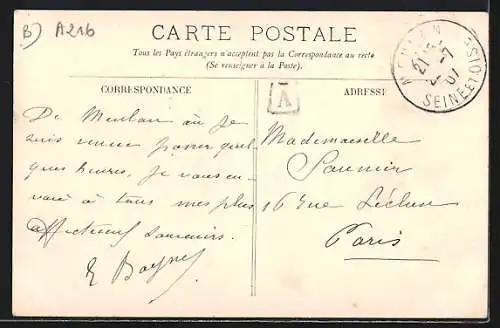 B) A216
CARTE POSTALE
Tous les Pays étrangers n'acceptent pas la Correspondance au recto
(Se renseigner à la Poste).
CORRESPONDANCE
ADRESSE
MEULAN
21
-7
07
SEINE-ET-OISE
V
De Meulan où je
suis venue passer quel
ques heures, je vous en-
voie à tous mes plus
affectueux souvenirs.
Mademoiselle
16 Rue Lécluse
Paris